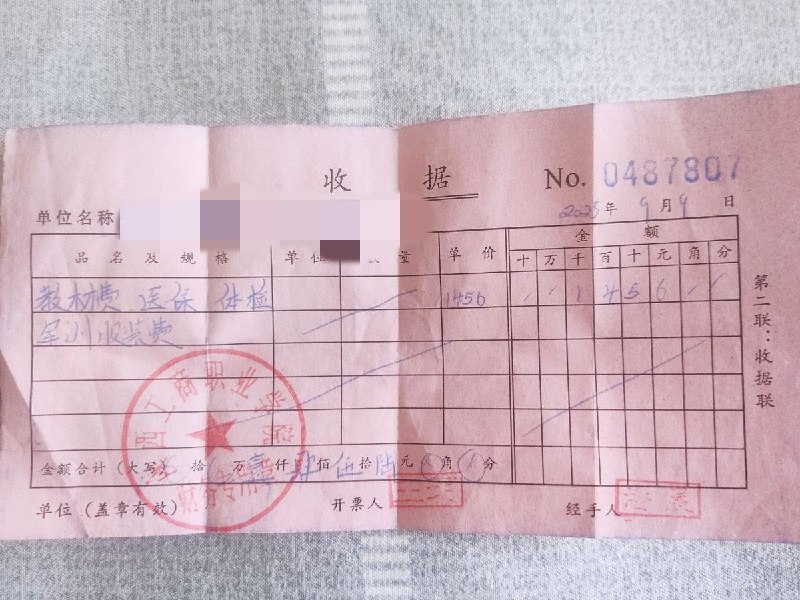 收 据 No. 0487807
单位名称 2023年 9月 9日
品名及规格 单位 数量 单价 金额
十 万 千 百 十 元 角 分
教材费 医保 体检 1456 1 4 5 6
军训服装费
西工商职业学院
财务专用章
金额合计(大写) 拾 万 壹仟 肆佰 伍拾 陆元 角 分
单位(盖章有效) 开票人 经手人
第二联:收据联